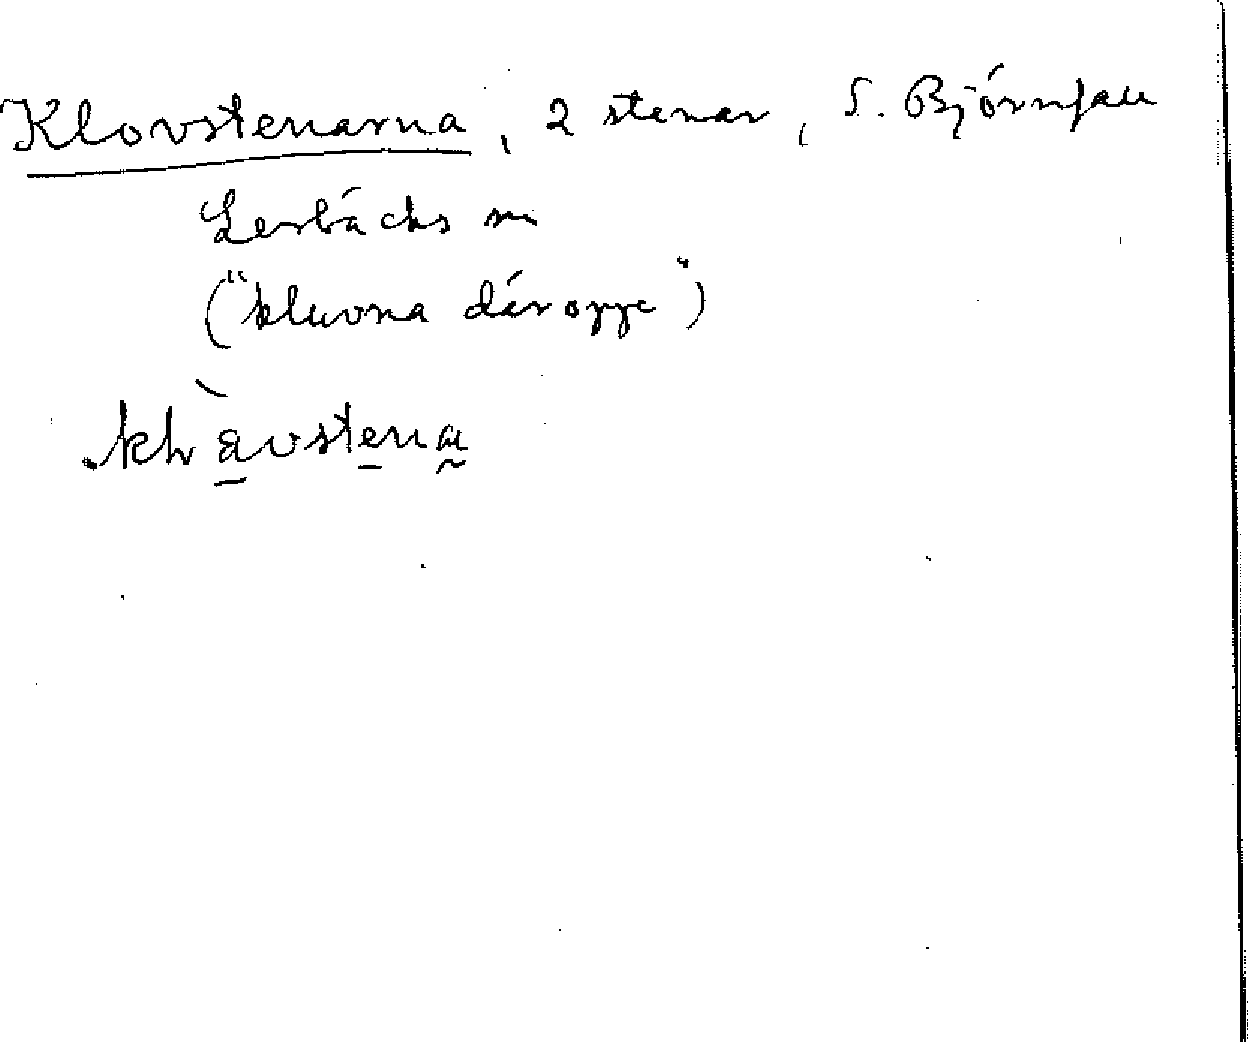 Klovstenarna, 2 stenar, S. Björnfall
Lerbäcks sn
("kluvna däroppe")